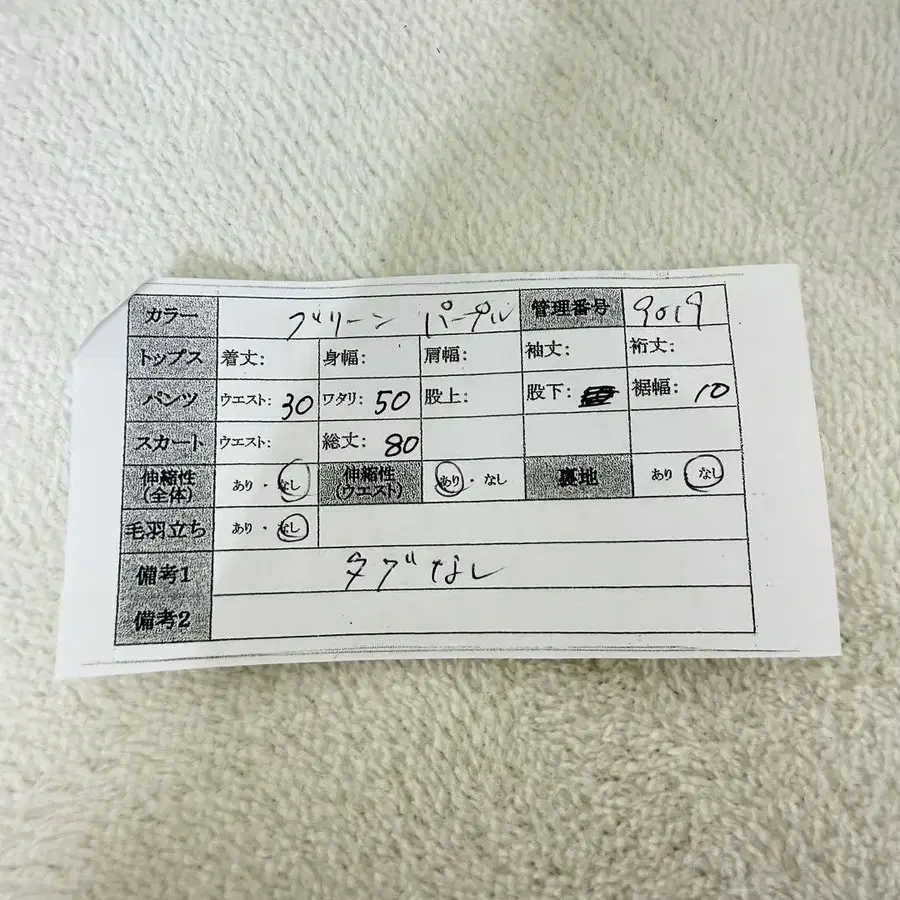 カラー グリーン パープル 管理番号 9019
トップス 着丈: 身幅: 肩幅: 袖丈: 裄丈:
パンツ ウエスト: 30 ワタリ: 50 股上: 股下: 裾幅: 10
スカート ウエスト: 総丈: 80
伸縮性(全体) あり・なし 伸縮性(ウエスト) あり・なし 裏地 あり なし
毛羽立ち あり・なし
備考1 タグなし
備考2